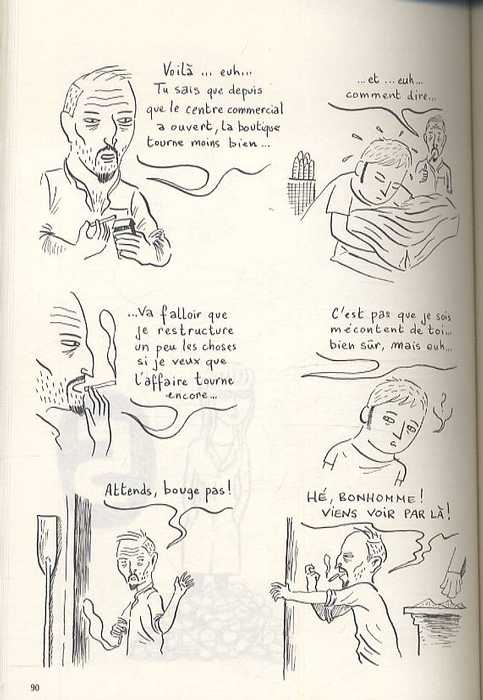 Voilà ... euh...
Tu sais que depuis
que le centre commercial
a ouvert, la boutique
tourne moins bien...
...et ...euh...
comment dire...
...Va falloir que
je restructure
un peu les choses
si je veux que
l'affaire tourne
encore...
C'est pas que je sois
mécontent de toi...
bien sûr, mais euh...
Attends, bouge pas!
HÉ, BONHOMME!
VIENS VOIR PAR LÀ!
90